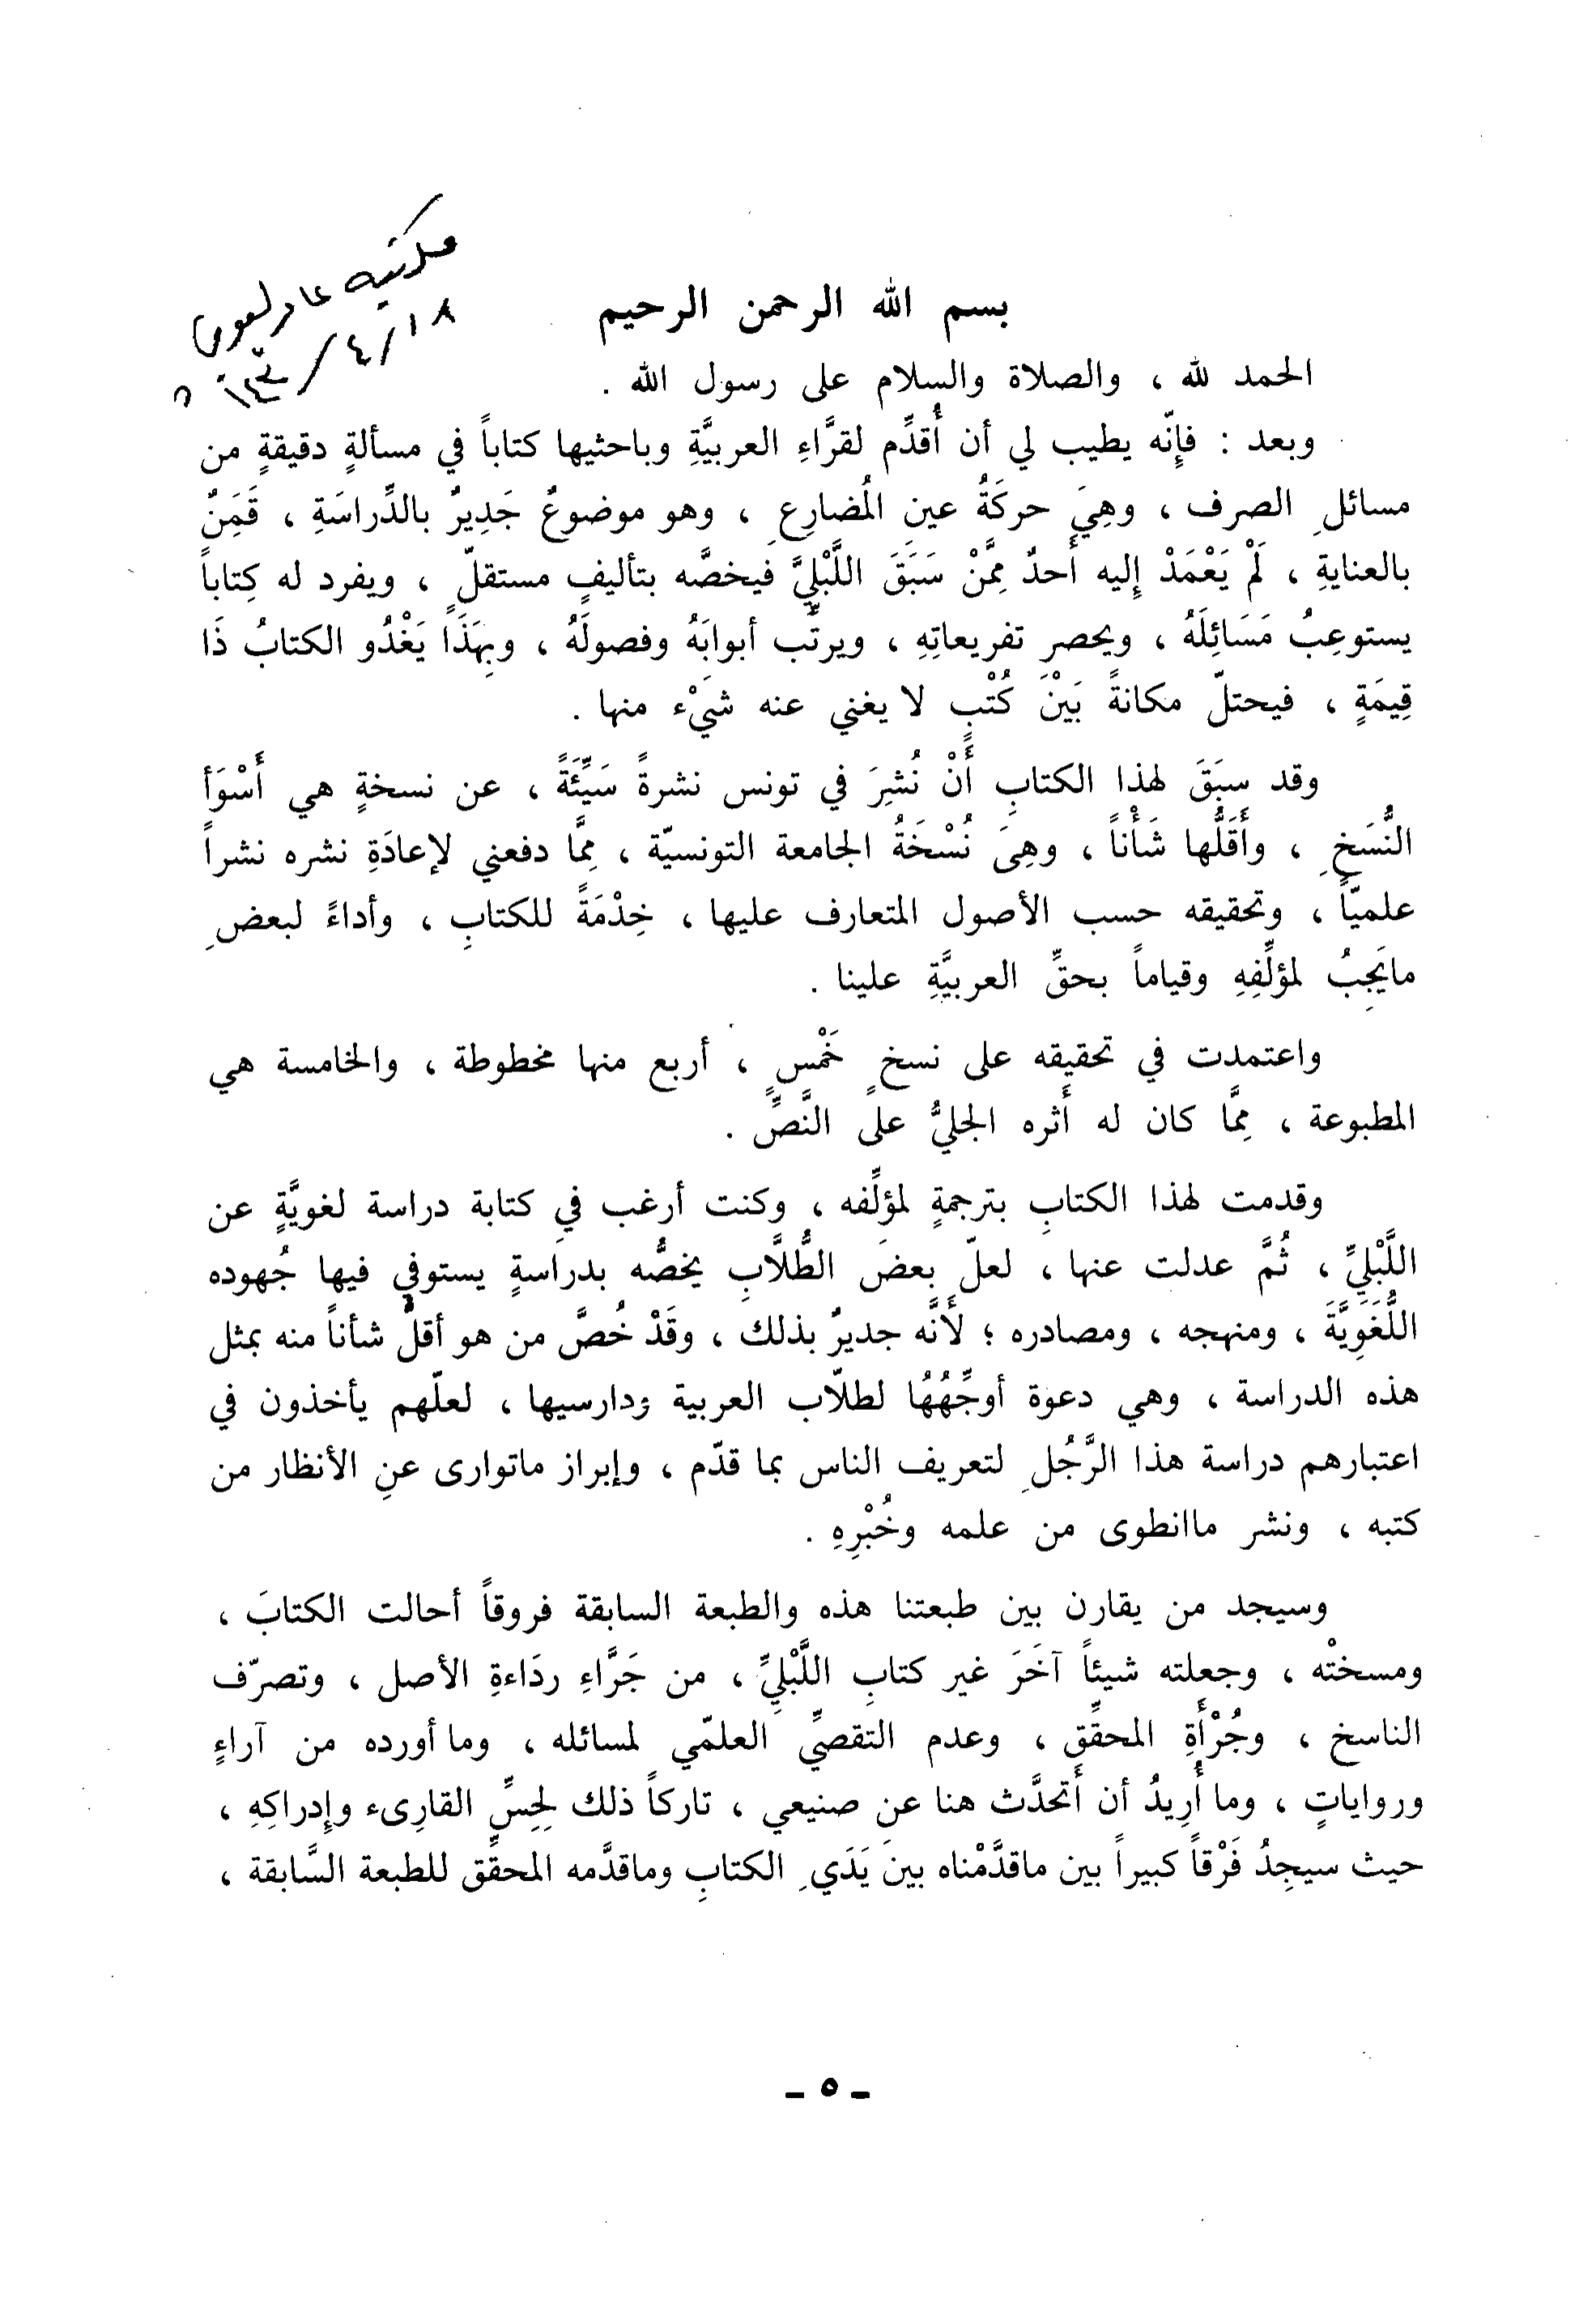 مكتبة
١٨ / ٤ /
بسم الله الرحمن الرحيم
الحمد لله ، والصلاة والسلام على رسول الله .
وبعد : فإِنّه يطيب لي أن أُقدِّم لقرَّاءِ العربيَّةِ وباحثيها كتاباً في مسألةٍ دقيقةٍ من
مسائلِ الصرف ، وهِيَ حركَةُ عينِ المُضارِعِ ، وهو موضوعٌ جَدِيرٌ بالدِّراسَةِ ، قَمَنٌ
بالعنايةِ ، لَمْ يَعْمَدْ إِليه أَحدٌ مِمَّنْ سَبَقَ اللَّبْلِيَّ فيخصَّه بتأليفٍ مستقلٍّ ، ويفرد له كِتاباً
يستوعِبُ مَسَائِلَهُ ، ويحصر تفريعاتِهِ ، ويرتِّب أبوابَهُ وفصولَهُ ، وبِهَذَا يَغْدُو الكتابُ ذَا
قِيمَةٍ ، فيحتلّ مكانةً بَيْنَ كُتْبٍ لا يغني عنه شَيْء منها .
وقد سبَقَ لهذا الكتابِ أَنْ نُشِرَ في تونس نشرةً سَيِّئَةً ، عن نسخةٍ هي أَسْوَأ
النُّسَخِ ، وأَقَلُّها شَأْناً ، وهِيَ نُسْخَةُ الجامعة التونسيّة ، مِمَّا دفعني لإعادَةِ نشره نشراً
علميّاً ، وتحقيقه حسب الأصول المتعارف عليها ، خِدْمَةً للكتابِ ، وأداءً لبعضِ
مايَجِبُ لمؤلِّفِهِ وقياماً بحقِّ العربيَّةِ علينا .
واعتمدت في تحقيقه على نسخٍ خَمْسٍ ، أربع منها مخطوطة ، والخامسة هي
المطبوعة ، مِمَّا كان له أَثره الجليُّ على النَّصِّ .
وقدمت لهذا الكتابِ بترجمةٍ لمؤلِّفه ، وكنت أرغب في كتابة دراسة لغويَّةٍ عن
اللَّبْلِيِّ ، ثُمَّ عدلت عنها ، لعلّ بعضَ الطُّلَّابِ يخصُّه بدراسةٍ يستوفي فيها جُهوده
اللُّغَوِيَّةَ ، ومنهجه ، ومصادره ؛ لأَنَّه جديرٌ بذلك ، وقَدْ خُصَّ من هو أقلُّ شأناً منه بمثل
هذه الدراسة ، وهي دعوة أوجِّهُهُا لطلّاب العربية ودارسيها ، لعلّهم يأخذون في
اعتبارهم دراسة هذا الرَّجُلِ لتعريف الناس بما قدّم ، وإبراز ماتوارى عنِ الأنظار من
كتبه ، ونشر ماانطوى من علمه وخُبْرِهِ .
وسيجد من يقارن بين طبعتنا هذه والطبعة السابقة فروقاً أحالت الكتابَ ،
ومسختْه ، وجعلته شيئاً آخَرَ غير كتابِ اللَّبْلِيِّ ، من جَرَّاءِ ردَاءةِ الأصل ، وتصرّف
الناسخ ، وجُرْأَةِ المحقِّقِ ، وعدم التقصِّي العلمّي لمسائله ، وما أورده من آراءٍ
ورواياتٍ ، وما أُرِيدُ أن أَتحدَّث هنا عن صنيعي ، تاركاً ذلك لِحِسِّ القارِىء وإِدراكِهِ ،
حيث سيجِدُ فَرْقاً كبيراً بين ماقدَّمْناه بينَ يَدَيِ الكتابِ وماقدَّمه المحقِّق للطبعة السَّابقة ،
ـ ٥ ـ